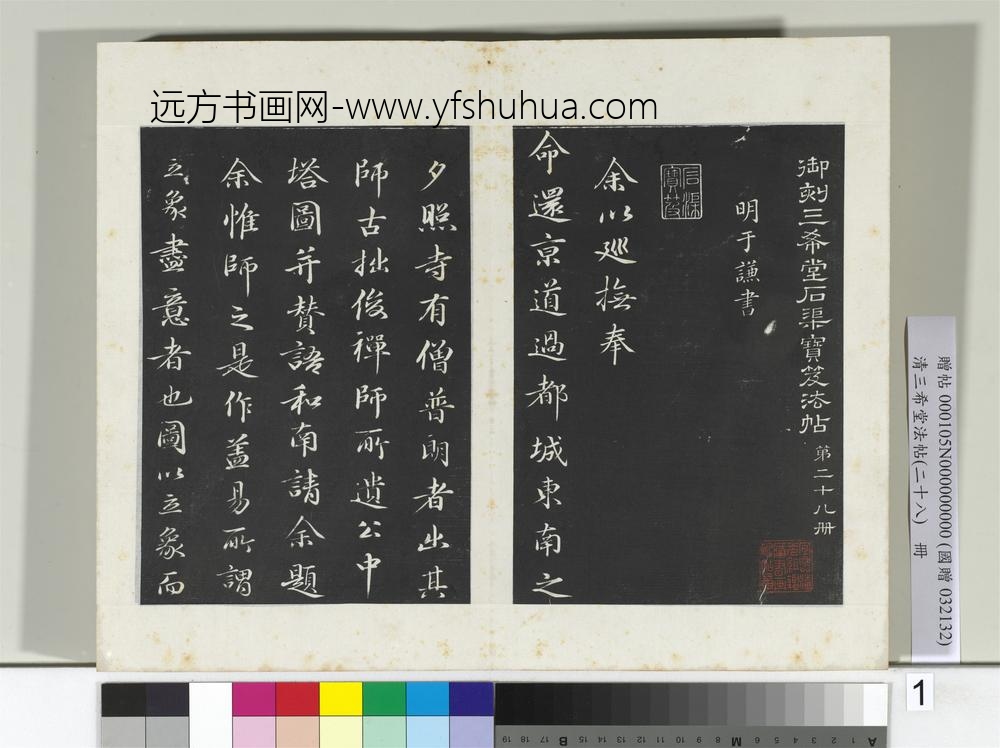 远方书画网-www.yfshuhua.com
御刻三希堂石渠寶笈法帖 第二十八册
明于謙書
石渠寶笈
余以廵撫奉
命還京道過都城東南之
夕照寺有僧普朗者出其
師古拙俊禪師所遺公中
塔圖并賛語和南請余題
余惟師之是作盖易所謂
立象盡意者也圖以立象而
贈帖 000105N000000000 (國贈 032132)
清三希堂法帖(二十八) 冊
1
A 1 2 3 4 5 6 M 8 9 10 11 12 13 14 15 B 17 18 19